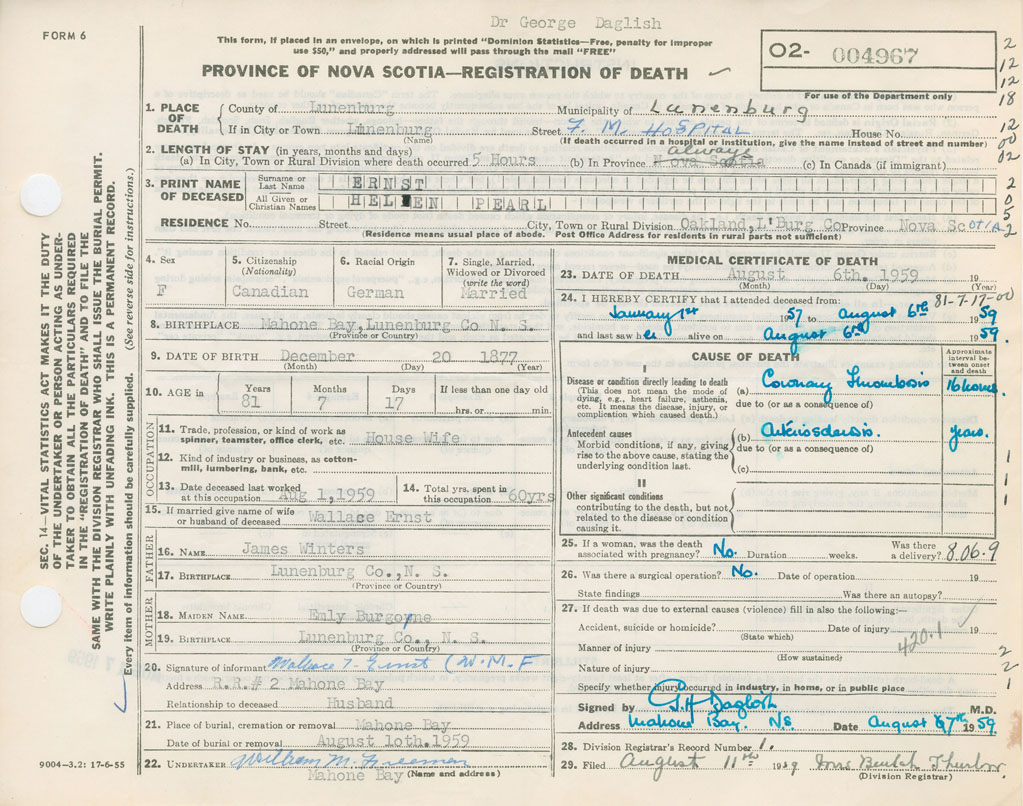 Dr George Daglish
FORM 6
This form, if placed in an envelope, on which is printed "Dominion Statistics—Free, penalty for improper
use $50," and properly addressed will pass through the mail "FREE"
PROVINCE OF NOVA SCOTIA—REGISTRATION OF DEATH
O2- 004967
For use of the Department only
2
12
12
18
12
00
02
2
0
5
2
1. PLACE OF DEATH
County of Lunenburg Municipality of Lunenburg
If in City or Town Lunenburg Street F. M. HOSPITAL House No.
(Name) (If death occurred in a hospital or institution, give the name instead of street and number)
2. LENGTH OF STAY (in years, months and days) always
(a) In City, Town or Rural Division where death occurred 5 Hours (b) In Province Nova Scotia (c) In Canada (if immigrant)
3. PRINT NAME OF DECEASED
Surname or Last Name ERNST
All Given or Christian Names HELEN PEARL
RESIDENCE No. Street City, Town or Rural Division Oakland, L'Burg Co Province Nova Scotia
(Residence means usual place of abode. Post Office Address for residents in rural parts not sufficient)
4. Sex
F
5. Citizenship
(Nationality)
Canadian
6. Racial Origin
German
7. Single, Married,
Widowed or Divorced
(write the word)
Married
8. BIRTHPLACE Mahone Bay, Lunenburg Co N. S.
(Province or Country)
9. DATE OF BIRTH December 20 1877
(Month) (Day) (Year)
10. AGE in
Years Months Days If less than one day old
81 7 17 hrs. or min.
OCCUPATION
11. Trade, profession, or kind of work as
spinner, teamster, office clerk, etc. House Wife
12. Kind of industry or business, as cotton-
mill, lumbering, bank, etc.
13. Date deceased last worked
at this occupation Aug 1, 1959
14. Total yrs. spent in
this occupation 60yrs
15. If married give name of wife
or husband of deceased Wallace Ernst
FATHER
16. NAME James Winters
17. BIRTHPLACE Lunenburg Co., N. S.
(Province or Country)
MOTHER
18. MAIDEN NAME Emly Burgoyne
19. BIRTHPLACE Lunenburg Co., N. S.
(Province or Country)
20. Signature of informant Wallace T. Ernst (W.M.F
Address R.R.# 2 Mahone Bay
Relationship to deceased Husband
21. Place of burial, cremation or removal Mahone Bay
Date of burial or removal August 10th. 1959
22. UNDERTAKER William M. Freeman
Mahone Bay (Name and address)
9004—3.2: 17-6-55
MEDICAL CERTIFICATE OF DEATH
23. DATE OF DEATH August 6th. 1959 19
(Month) (Day) (Year)
81-7-17-00
24. I HEREBY CERTIFY that I attended deceased from:
January 1st 1957 to August 6th 1959
and last saw her alive on August 6th 1959.
CAUSE OF DEATH
Approximate
interval be-
tween onset
and death
I
Disease or condition directly leading to death
(This does not mean the mode of
dying, e.g., heart failure, asthenia,
etc. It means the disease, injury, or
complication which caused death.)
(a) Coronary Thrombosis 16 hours
due to (or as a consequence of)
Antecedent causes
Morbid conditions, if any, giving
rise to the above cause, stating the
underlying condition last.
(b) Arteriosclerosis. years.
due to (or as a consequence of)
(c)
1
1
1
II
Other significant conditions
contributing to the death, but not
related to the disease or condition
causing it.
25. If a woman, was the death
associated with pregnancy? No. Duration weeks. Was there
a delivery? 8.06.9
26. Was there a surgical operation? No. Date of operation 19
State findings Was there an autopsy?
27. If death was due to external causes (violence) fill in also the following:—
Accident, suicide or homicide? Date of injury 19
(State which)
420.1
Manner of injury
(How sustained)
Nature of injury
2
2
1
Specify whether injury occurred in industry, in home, or in public place
Signed by G. H. Daglish M.D.
Address Mahone Bay. N.S. Date August 7th 1959
28. Division Registrar's Record Number 1.
29. Filed August 11th 1959 Mrs Beulah Thurlow
(Division Registrar)
SEC. 14—VITAL STATISTICS ACT MAKES IT THE DUTY
OF THE UNDERTAKER OR PERSON ACTING AS UNDER-
TAKER TO OBTAIN ALL THE PARTICULARS REQUIRED
IN THE "REGISTRATION OF DEATH" AND TO FILE THE
SAME WITH THE DIVISION REGISTRAR WHO SHALL ISSUE THE BURIAL PERMIT.
WRITE PLAINLY WITH UNFADING INK. THIS IS A PERMANENT RECORD.
Every item of information should be carefully supplied. (See reverse side for instructions.)